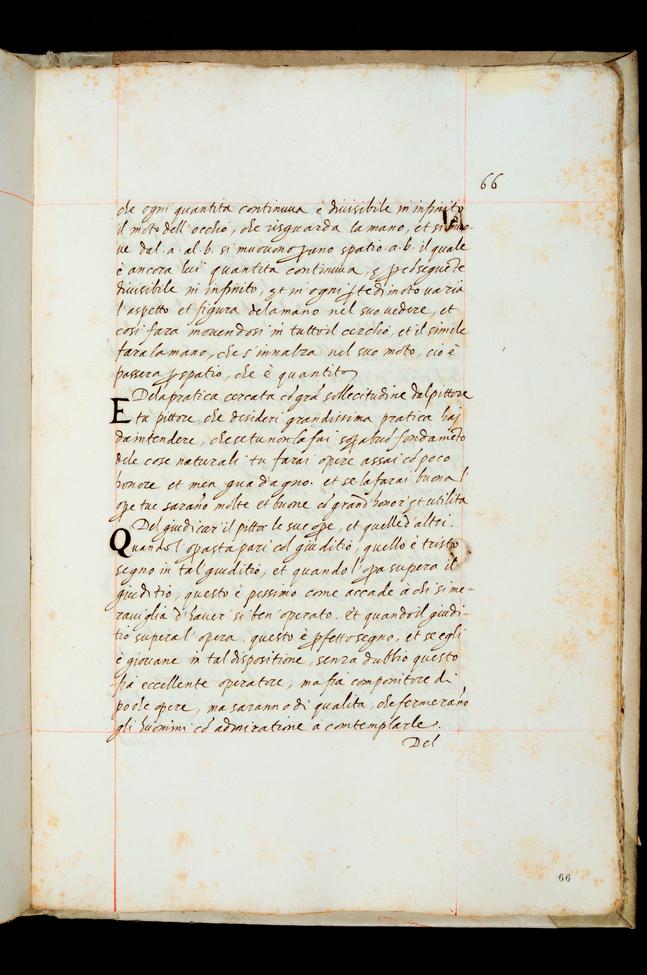 66
che ogni quantita continuua è diuisibile in infinito
il moto dell' occhio, che risguarda la mano, et si muo-
ue dal .a. al .b. si muouono ꝑ uno spatio .a.b. il quale
è ancora lui quantita continuua, ꝫ ꝑ cōsequēte
diuisibile in infinito, et in ogni ꝑte di moto uaria
l'aspetto et figura dela mano nel suo uedere, et
cosi fara mouendosi in tutto il cerchio, et il simile
fara la mano, che s'innalza nel suo moto, cio è
passera ꝑ spatio, che è quantita
Dela pratica cercata cō grā sollecitudine dal pittore
E tu pittore, che desideri grandissima pratica hai
da intendere, che se tu non la fai sopra buō fondamēto
dele cose naturali tu farai opere assai cō poco
honore et men guadagno. et se la farai buona l'
oꝑe tue sarāno molte et buone cō grand' honor' et utilita
Del giudicar' il pittor le sue oꝑe, et quelle d'altri.
Quando l'oꝑa sta pari col giuditio, quello è tristo
segno in tal giuditio, et quando l'oꝑa supera il
giuditio, questo è pessimo come accade à chi si me-
rauiglia d'hauer' si ben' operato. et quando il giudi-
tio supera l'opera . questo è ꝑfetto segno, et se egli
è giouane in tal dispositione, senza dubbio questo
fia eccellente operatore, ma fia componitore di
poche opere, ma saranno di qualita, che fermerāno
gli huomini cō admiratione à contemplarle.
Del
66